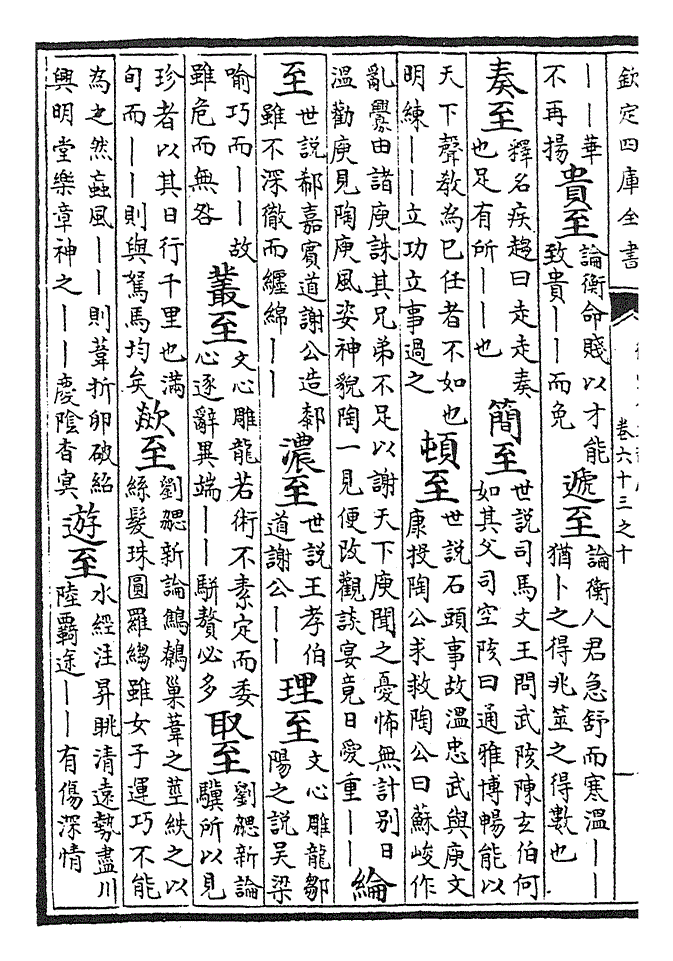 欽定四庫全書
卷六十三之十
一一華
不再揚
貴至
論衡命賤以才能
致貴一一而免
遞至
論衡人君急舒而寒溫一一
猶卜之得兆筮之得數也
奏至
釋名疾趨曰走走奏
也足有所一一也
簡至
世説司馬文王問武陔陳玄伯何
如其父司空陔曰通雅博暢能以
天下聲教為已任者不如也
明練一一立功立事過之
頓至
世説石頭事故溫忠武與庾文
康投陶公求救陶公曰蘇峻作
亂釁由諸庾誅其兄弟不足以謝天下庾聞之憂怖無計别日
温勸庾見陶庾風姿神貌陶一見便改觀談宴竟日愛重一一
綸
至
世説郗嘉賓道謝公造䣛
雖不深徹而纏綿一一
濃至
世説王孝伯
道謝公一一
理至
文心雕龍鄒
陽之説吴梁
喻巧而一一故
雖危而無咎
叢至
文心雕龍若術不素定而委
心逐辭異端一一駢贅必多
取至
劉勰新論
驥所以見
珍者以其日行千里也滿
旬而一一則與駑馬均矣
歘至
劉勰新論鷦鷯巢葦之莖紩之以
絲髮珠圓羅縐雖女子運巧不能
為之然焱風一一則葦折卵破紹
興明堂樂章神之一一慶陰杳冥
遊至
水經注昇眺清遠勢盡川
陸覊途一一有傷深情